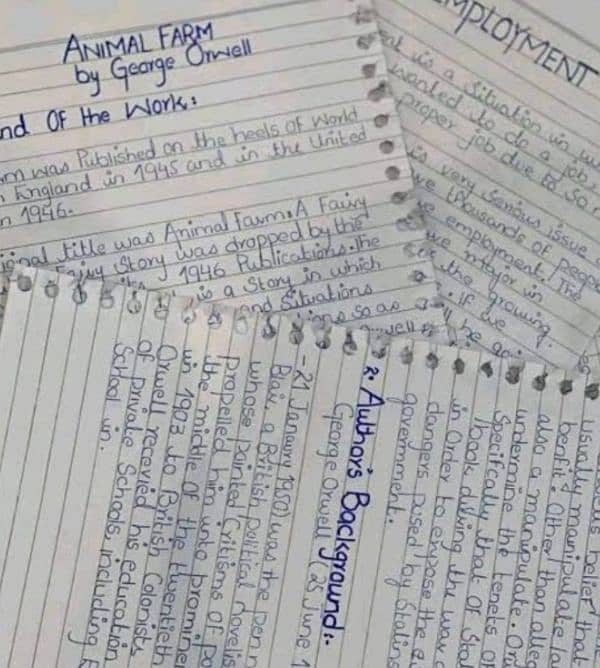 ANIMAL FARM
by George Orwell
nd Of the Work:
m was Published on the heels of World
England in 1945 and in the United
n 1946.
ional title was Animal Farm: A Fairy
Fairy Story was dropped by the
1946 Publications. The
is a Story in which
and Situations
so as
MPLOYMENT
is a Situation in
wanted to do a job,
proper job due to So
is very Serious issue
thousands of people
employment. The
major in
the growing
. If we
usually manipulate
benfit. Other than
also a manipulate
undermine the tenets of
Specifically that of
back during the war
in Order to expose the
dangers posed by Stalin
government.
2. Author's Background:-
George Orwell (25 June 1
- 21 Janaury 1950) was the pen n
Blair, a British political novelis
whose pointed Critisms of po
propelled him into prominen
the middle of the twentieth
in 1903 to British Colonists,
Orwell recevied his education
of private Schools, including E
School in.